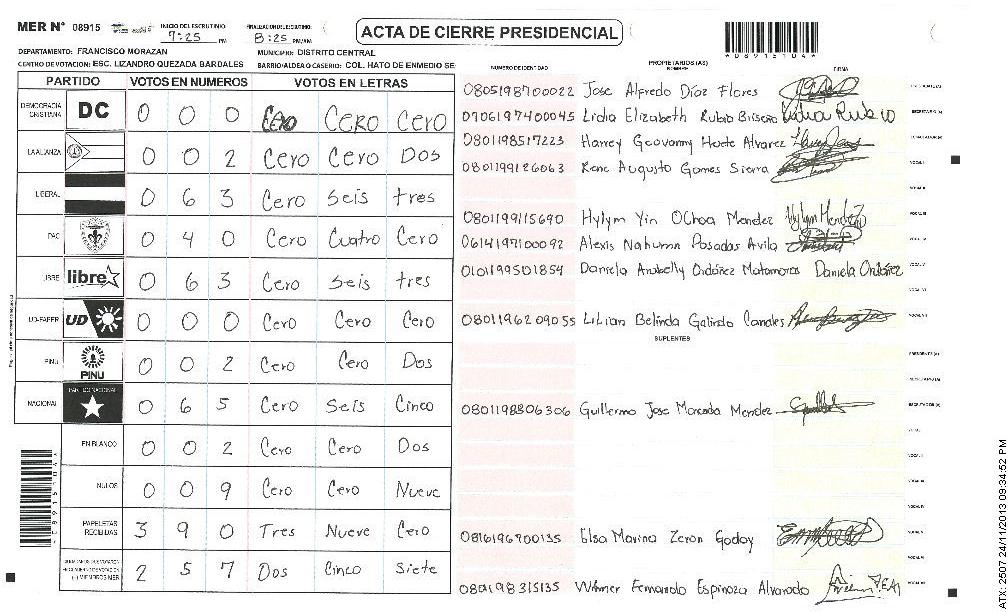 MER N° 08915 INICIO DEL ESCRUTINIO 7:25 PM FINALIZACION DEL ESCRUTINIO 8:25 PM/AM ACTA DE CIERRE PRESIDENCIAL
*08915104*
DEPARTAMENTO: FRANCISCO MORAZAN MUNICIPIO: DISTRITO CENTRAL
CENTRO DE VOTACION: ESC. LIZANDRO QUEZADA BARDALES BARRIO/ALDEA O CASERIO: COL. HATO DE ENMEDIO SE
PARTIDO VOTOS EN NUMEROS VOTOS EN LETRAS
DEMOCRACIA CRISTIANA DC 0 0 0 Cero Cero Cero
LA ALIANZA 0 0 2 Cero Cero Dos
LIBERAL 0 6 3 Cero Seis tres
PAC 0 4 0 Cero Cuatro Cero
LIBRE libre 0 6 3 Cero Seis tres
UD-FAPER UD 0 0 0 Cero Cero Cero
PINU PINU 0 0 2 Cero Cero Dos
NACIONAL PARTIDO NACIONAL 0 6 5 Cero Seis Cinco
EN BLANCO 0 0 2 Cero Cero Dos
NULOS 0 0 9 Cero Cero Nueve
PAPELETAS RECIBIDAS 3 9 0 Tres Nueve Cero
2 5 7 Dos Cinco Siete
NUMERO DE IDENTIDAD PROPIETARIOS (AS) NOMBRE FIRMA
0805198700022 Jose Alfredo Díaz Flores
0706197400045 Lidia Elizabeth Rubio Lidia Rubio
0801198517223 Harrey Geovanny Huete Alvarez
0801199126063 Rene Augusto Gomes Sierra
0801199115690 Hylym Yin Ochoa Mendez Hylym Mendez
0614197100092 Alexis Nahumn Posadas Avila
0101199501854 Daniela Anabelly Ordóñez Matamoros Daniela Ordóñez
0801196209055 Lilian Belinda Galindo Canales
SUPLENTES
0801198806306 Guillermo Jose Moncada Mendez
0816196700135 Elsa Marina Zeron Godoy
Wilmer Fernando Espinoza Alvarado
*08915104*
ATX: 2507 24/11/2013 09:34:52 PM